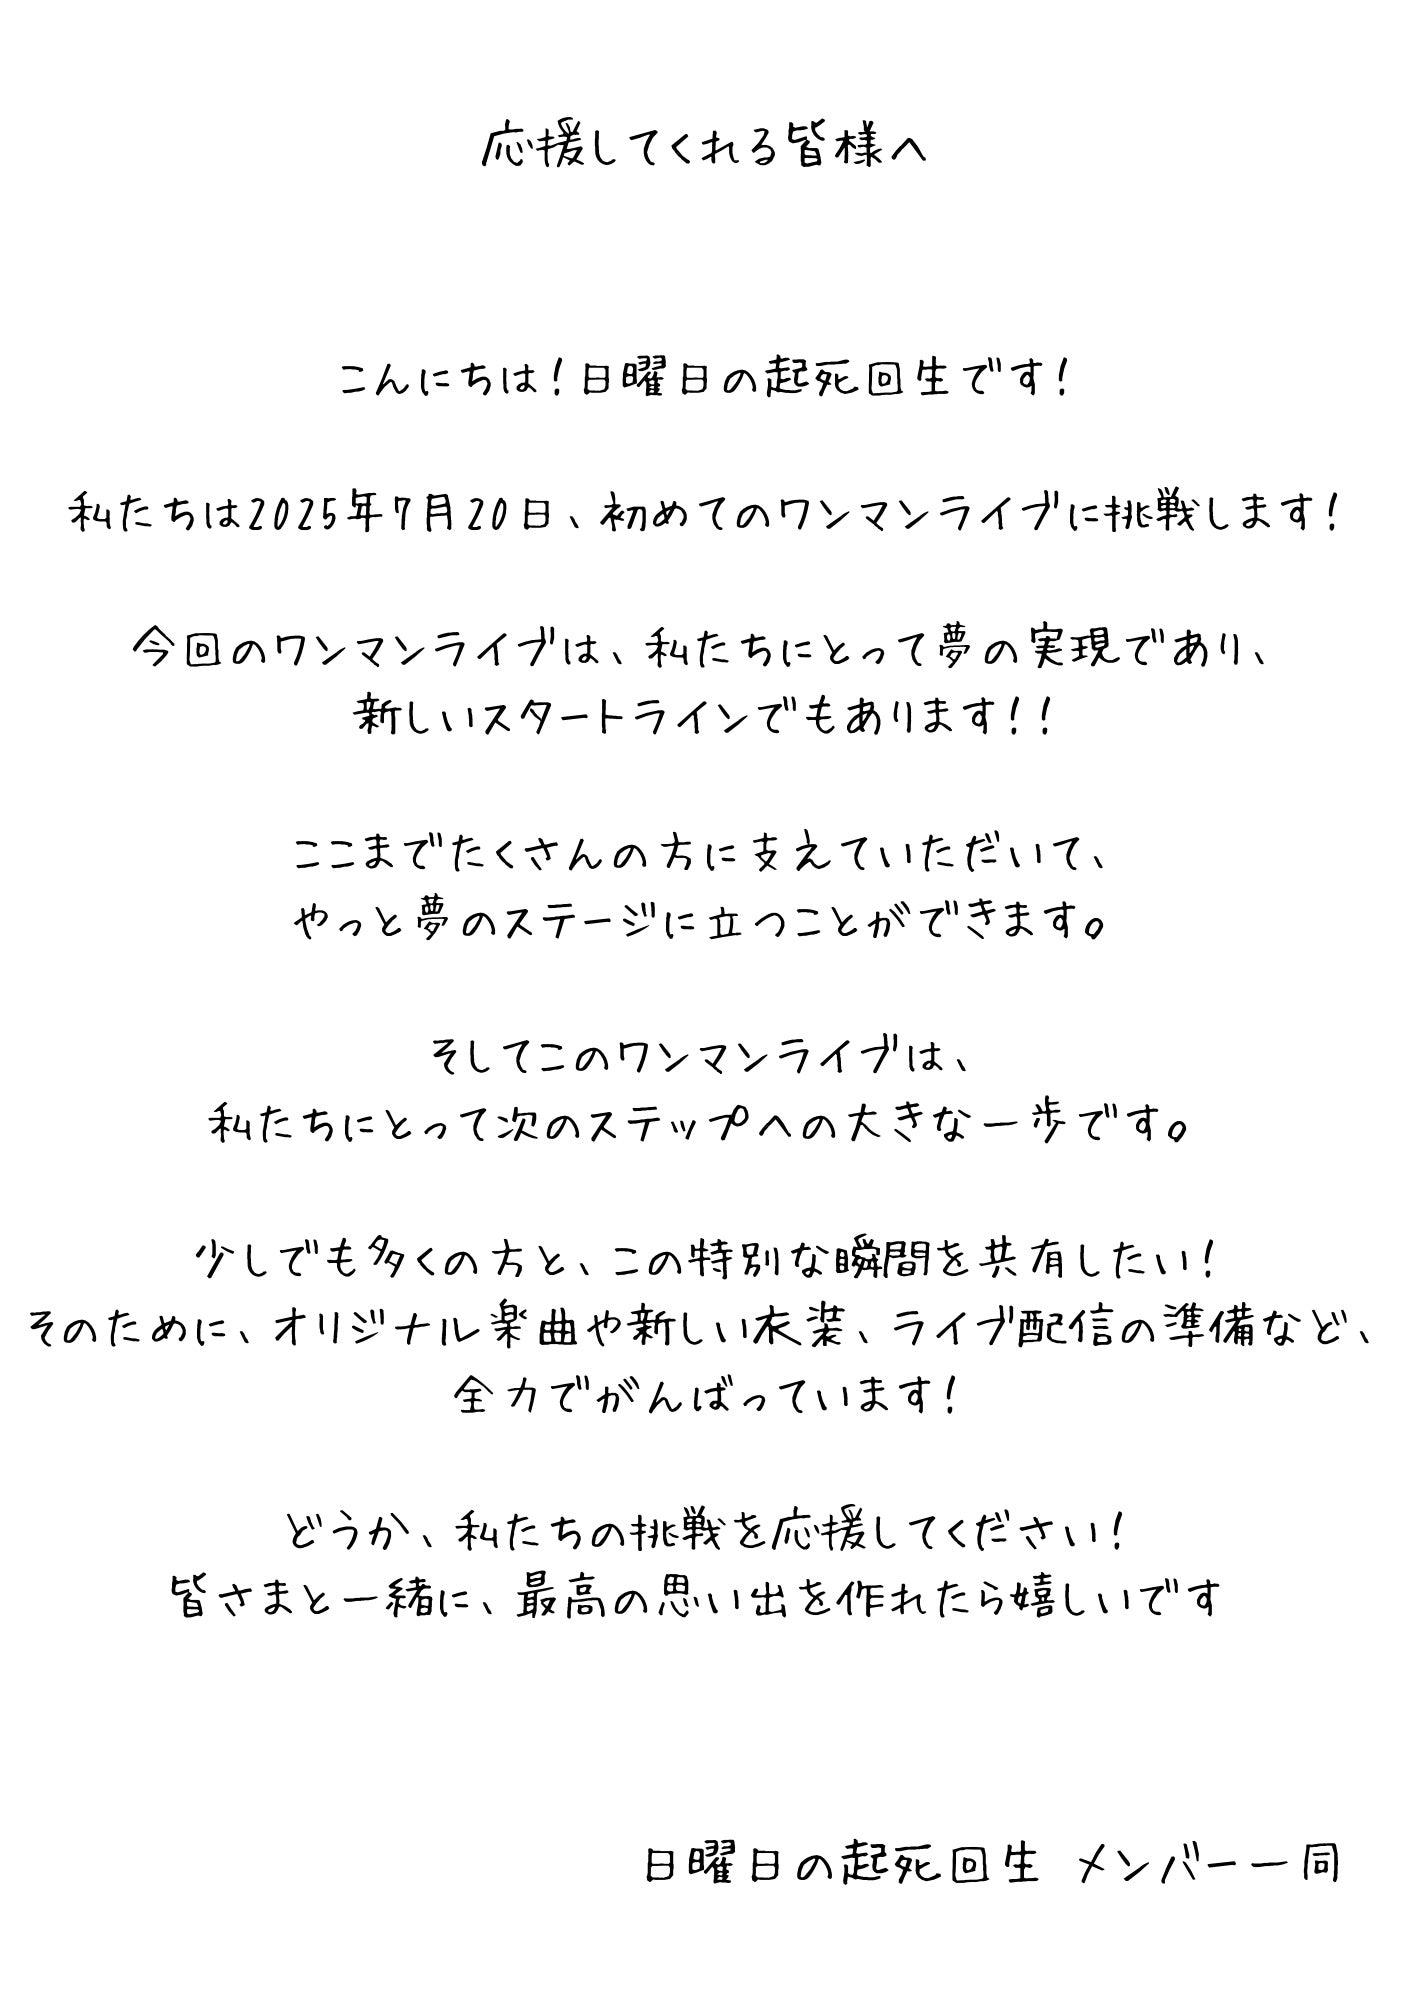 応援してくれる皆様へ
こんにちは!日曜日の起死回生です!
私たちは2025年7月20日、初めてのワンマンライブに挑戦します!
今回のワンマンライブは、私たちにとって夢の実現であり、
新しいスタートラインでもあります!!
ここまでたくさんの方に支えていただいて、
やっと夢のステージに立つことができます。
そしてこのワンマンライブは、
私たちにとって次のステップへの大きな一歩です。
少しでも多くの方と、この特別な瞬間を共有したい!
そのために、オリジナル楽曲や新しい衣装、ライブ配信の準備など、
全力でがんばっています!
どうか、私たちの挑戦を応援してください!
皆さまと一緒に、最高の思い出を作れたら嬉しいです
日曜日の起死回生 メンバー一同